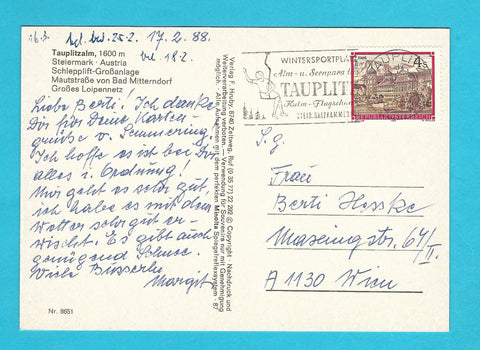 16.3. bgl. bew. 25.2. 17.2.88.
erl. 18.2.
Tauplitzalm, 1600 m
Steiermark · Austria
Schlepplift-Großanlage
Mautstraße von Bad Mitterndorf
Großes Loipennetz
Liebe Berti! Ich danke
Dir für Deine Karten-
grüße v. Semmering.
Ich hoffe es ist bei Dir
alles in Ordnung!
Mir geht es sehr gut,
ich habe es mit dem
Wetter sehr gut er-
wischt. Es gibt auch
genügend Schnee.
Viele Busserln
Margit
Nr. 8651
Verlag F. Hruby, 8740 Zeltweg, Ruf (0 35 77) 22 292 © Copyright · Nachdruck und
Weiterverarbeitung verboten — Verwendung für Souvenirs nur mit Genehmigung
möglich. Alle Aufnahmen mit dem perfekten Spiegelreflexsystem · 87
WINTERSPORTPLATZ
Alm- u. Seenpara
TAUPLIT
Kulm-Flugschanze
STEIR. SALZKAMMER
TAUPLITZ
REPUBLIK ÖSTERREICH
S.g.
Frau
Berti Hosske
Maxingstr. 64/
II.
A 1130 Wien